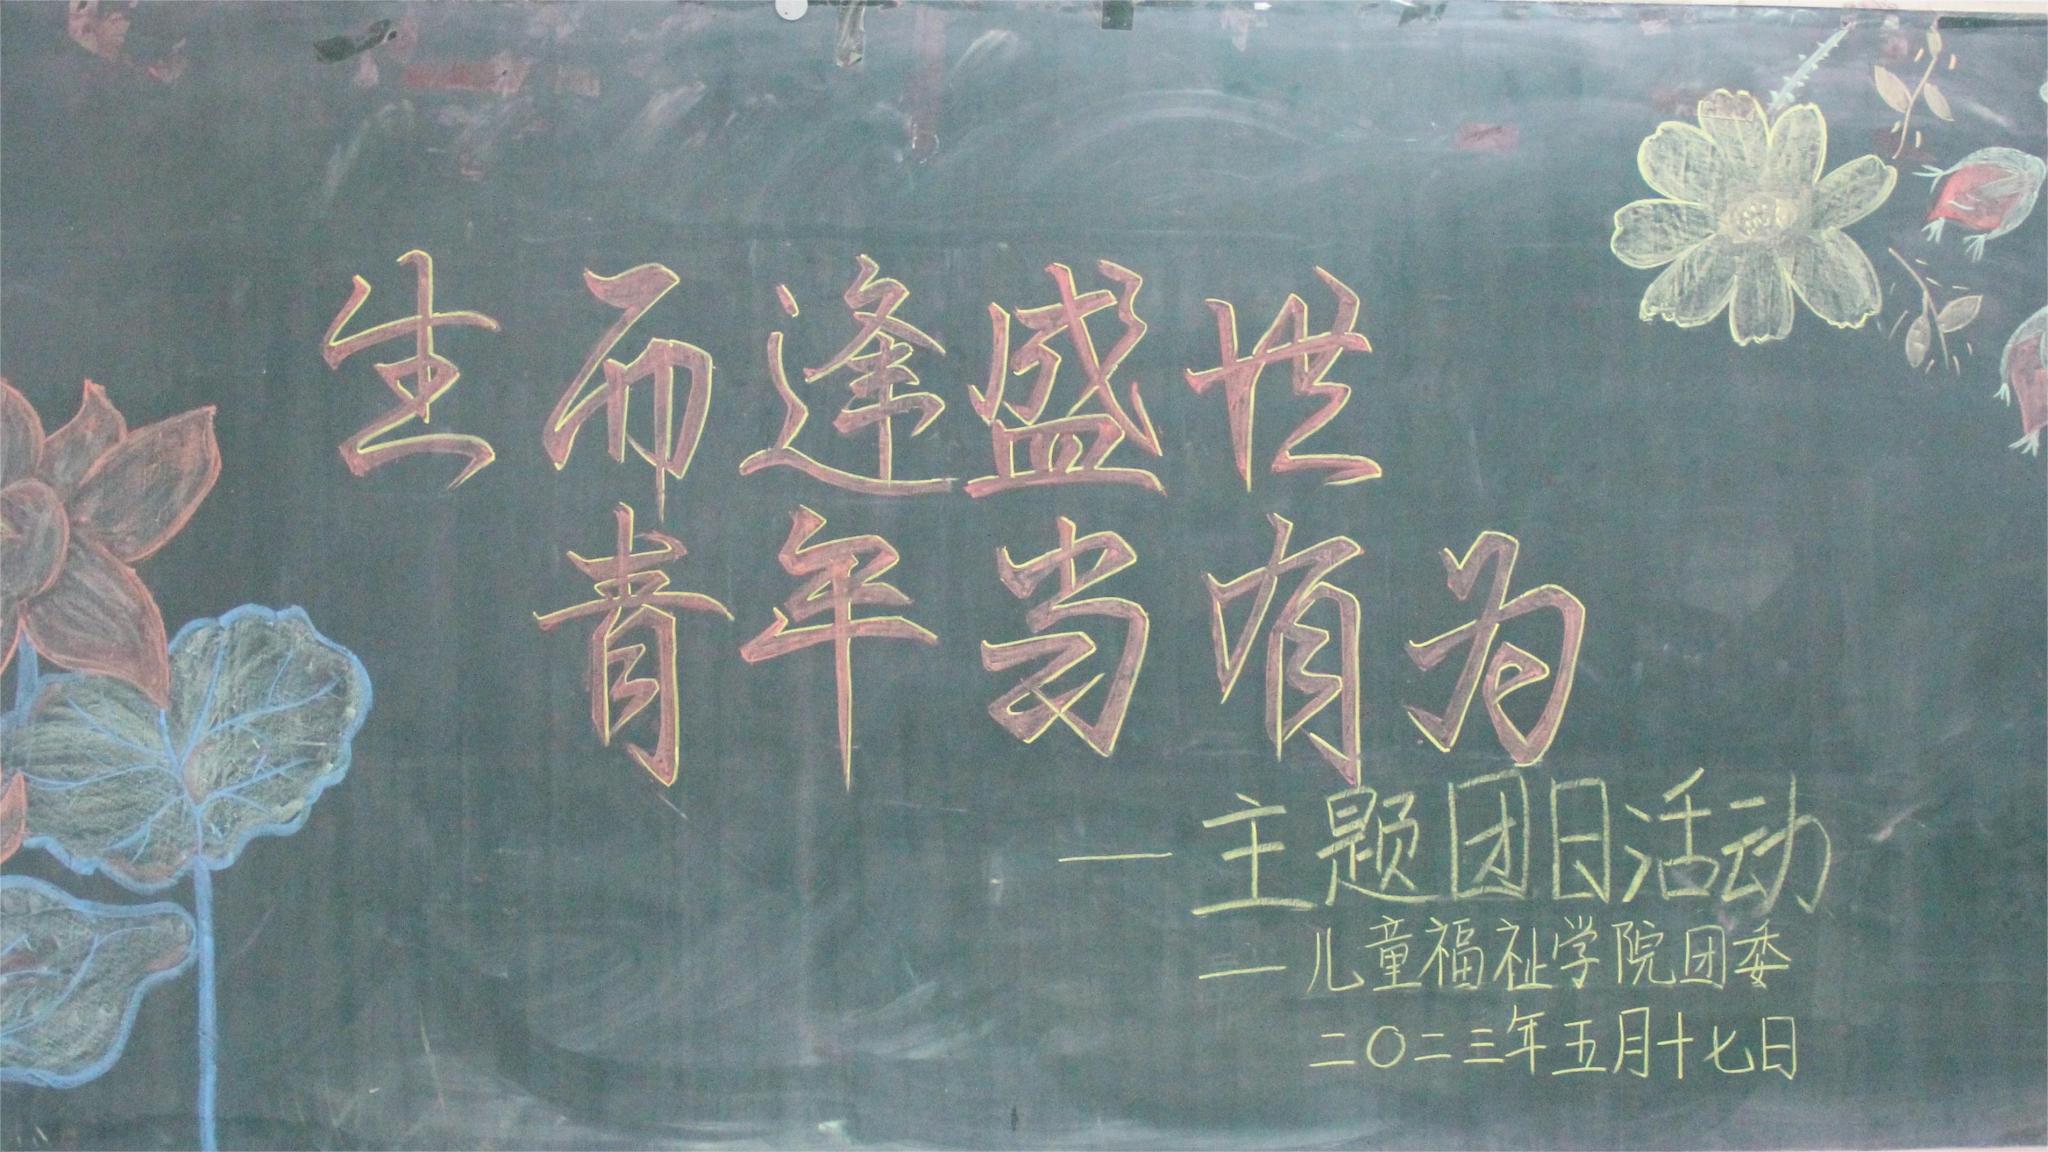 生而逢盛世
青年当有为
—主题团日活动
—儿童福祉学院团委
二〇二三年五月十七日